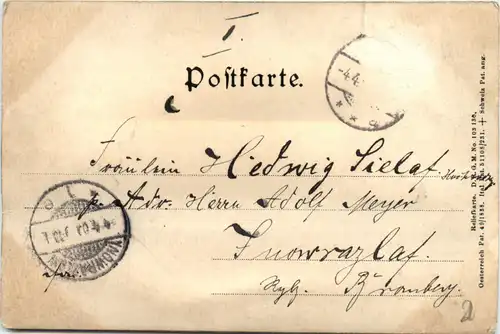 I.
Postkarte.
-4.4.
Fräulein Hedwig Sielaf.
p. Adr. Herrn Adolf Meyer
Inowrazlaf.
Bromberg.
Reliefkarte. D. R. G. M. No. 103 138,
Oesterreich Pat. Schweiz Pat. ang.
2